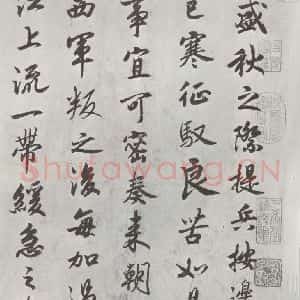 盛秋之際提兵按邊
已寒征馭良苦如是
事宜可密奏来朝
西軍叛之後每加過
江上流一帶緩急之
Shufawang.CN